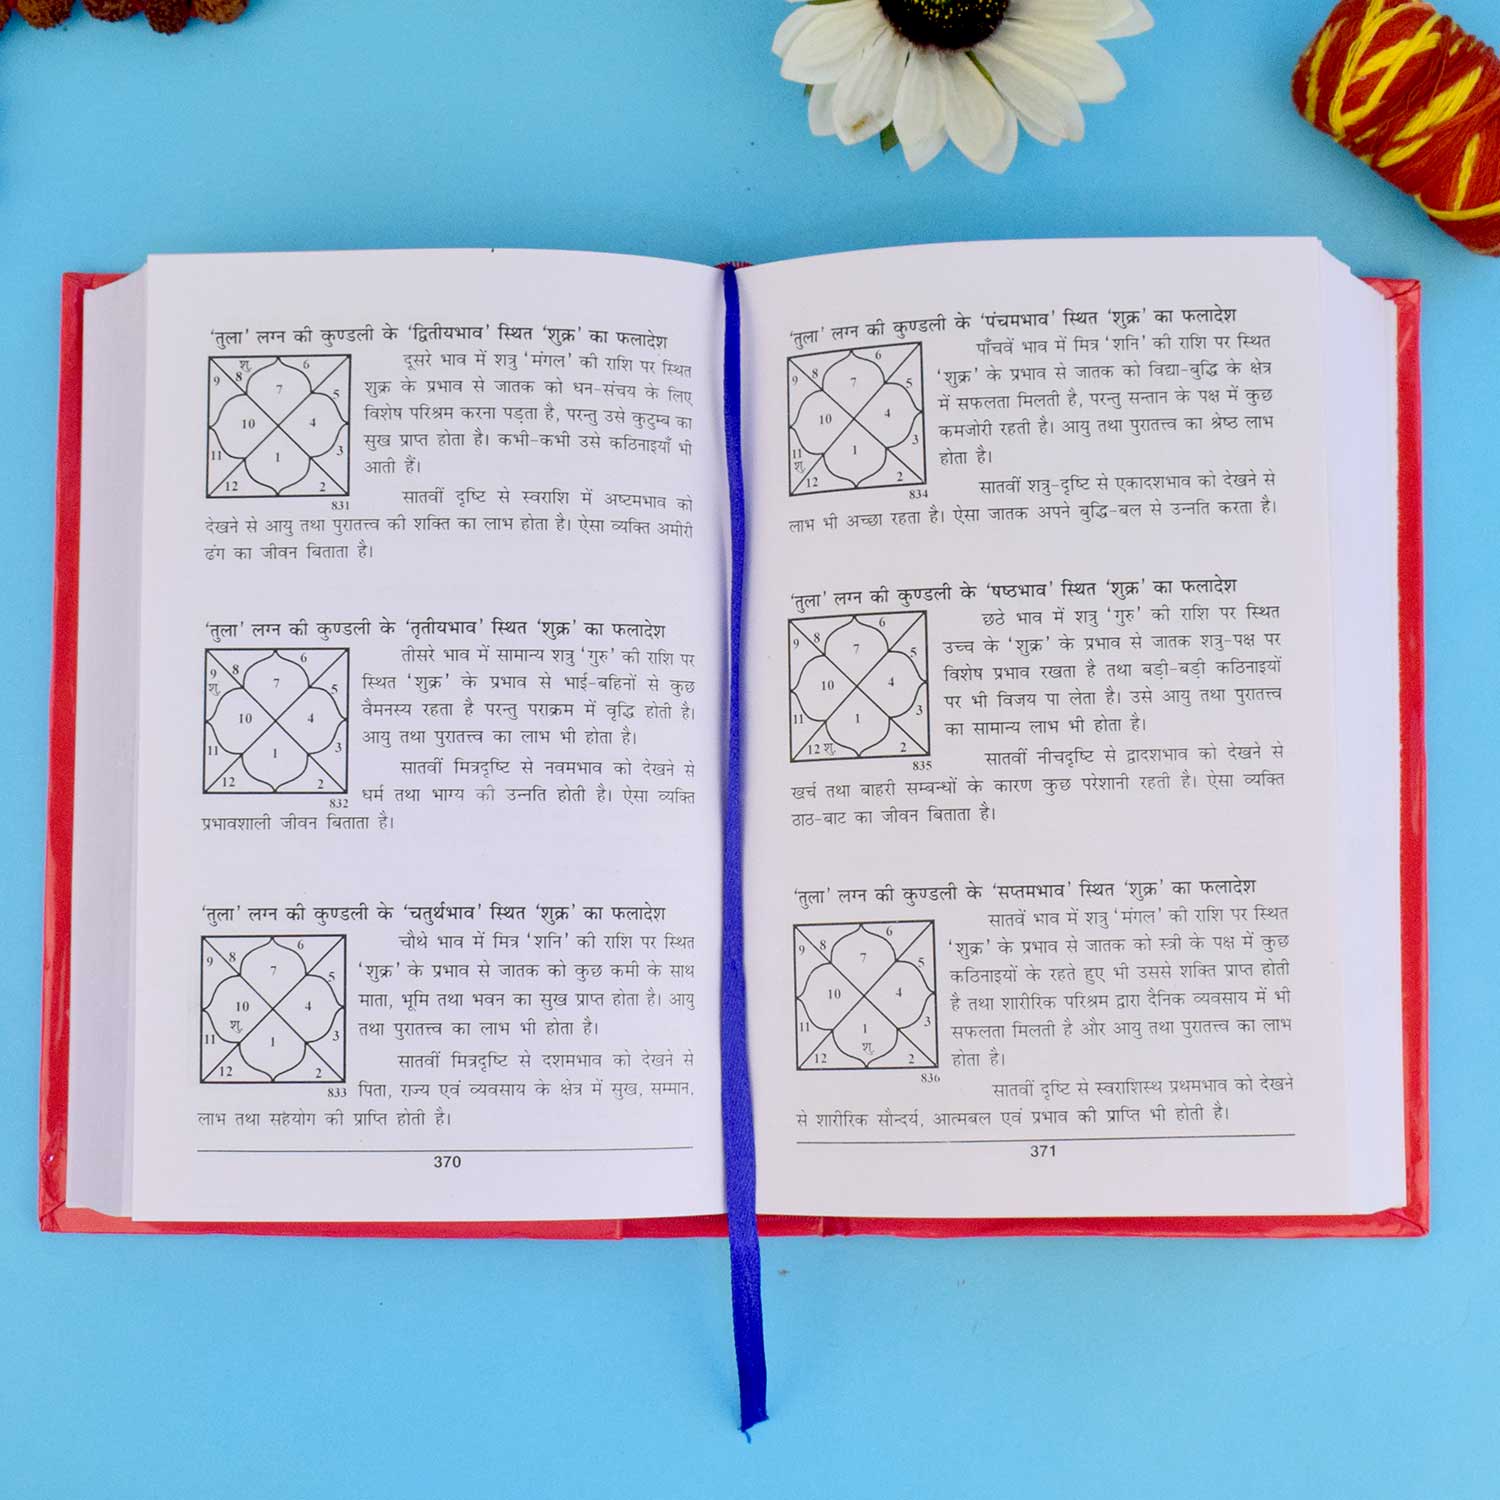 'तुला' लग्न की कुण्डली के 'द्वितीयभाव' स्थित 'शुक्र' का फलादेश
दूसरे भाव में शत्रु 'मंगल' की राशि पर स्थित
शुक्र के प्रभाव से जातक को धन-संचय के लिए
विशेष परिश्रम करना पड़ता है, परन्तु उसे कुटुम्ब का
सुख प्राप्त होता है। कभी-कभी उसे कठिनाइयाँ भी
आती हैं।
शु. 6
9 8 7 5
10 4
11 1 3
12 2
831
सातवीं दृष्टि से स्वराशि में अष्टमभाव को
देखने से आयु तथा पुरातत्त्व की शक्ति का लाभ होता है। ऐसा व्यक्ति अमीरी
ढंग का जीवन बिताता है।
'तुला' लग्न की कुण्डली के 'तृतीयभाव' स्थित 'शुक्र' का फलादेश
तीसरे भाव में सामान्य शत्रु 'गुरु' की राशि पर
स्थित 'शुक्र' के प्रभाव से भाई-बहिनों से कुछ
वैमनस्य रहता है परन्तु पराक्रम में वृद्धि होती है।
आयु तथा पुरातत्त्व का लाभ भी होता है।
9 8 6
शु. 7 5
10 4
11 1 3
12 2
832
सातवीं मित्रदृष्टि से नवमभाव को देखने से
धर्म तथा भाग्य की उन्नति होती है। ऐसा व्यक्ति
प्रभावशाली जीवन बिताता है।
'तुला' लग्न की कुण्डली के 'चतुर्थभाव' स्थित 'शुक्र' का फलादेश
चौथे भाव में मित्र 'शनि' की राशि पर स्थित
'शुक्र' के प्रभाव से जातक को कुछ कमी के साथ
माता, भूमि तथा भवन का सुख प्राप्त होता है। आयु
तथा पुरातत्त्व का लाभ भी होता है।
9 8 6
7 5
10 4
शु.
11 1 3
12 2
833
सातवीं मित्रदृष्टि से दशमभाव को देखने से
पिता, राज्य एवं व्यवसाय के क्षेत्र में सुख, सम्मान,
लाभ तथा सहयोग की प्राप्ति होती है।
370
'तुला' लग्न की कुण्डली के 'पंचमभाव' स्थित 'शुक्र' का फलादेश
पाँचवें भाव में मित्र 'शनि' की राशि पर स्थित
'शुक्र' के प्रभाव से जातक को विद्या-बुद्धि के क्षेत्र
में सफलता मिलती है, परन्तु सन्तान के पक्ष में कुछ
कमजोरी रहती है। आयु तथा पुरातत्त्व का श्रेष्ठ लाभ
होता है।
9 8 6
7 5
10 4
11 1 3
शु.
12 2
834
सातवीं शत्रु-दृष्टि से एकादशभाव को देखने से
लाभ भी अच्छा रहता है। ऐसा जातक अपने बुद्धि-बल से उन्नति करता है।
'तुला' लग्न की कुण्डली के 'षष्ठभाव' स्थित 'शुक्र' का फलादेश
छठे भाव में शत्रु 'गुरु' की राशि पर स्थित
उच्च के 'शुक्र' के प्रभाव से जातक शत्रु-पक्ष पर
विशेष प्रभाव रखता है तथा बड़ी-बड़ी कठिनाइयों
पर भी विजय पा लेता है। उसे आयु तथा पुरातत्त्व
का सामान्य लाभ भी होता है।
9 8 6
7 5
10 4
11 1 3
12 शु. 2
835
सातवीं नीचदृष्टि से द्वादशभाव को देखने से
खर्च तथा बाहरी सम्बन्धों के कारण कुछ परेशानी रहती है। ऐसा व्यक्ति
ठाठ-बाट का जीवन बिताता है।
'तुला' लग्न की कुण्डली के 'सप्तमभाव' स्थित 'शुक्र' का फलादेश
सातवें भाव में शत्रु 'मंगल' की राशि पर स्थित
'शुक्र' के प्रभाव से जातक को स्त्री के पक्ष में कुछ
कठिनाइयों के रहते हुए भी उससे शक्ति प्राप्त होती
है तथा शारीरिक परिश्रम द्वारा दैनिक व्यवसाय में भी
सफलता मिलती है और आयु तथा पुरातत्त्व का लाभ
होता है।
9 8 6
7 5
10 4
11 1 3
शु.
12 2
836
सातवीं दृष्टि से स्वराशिस्थ प्रथमभाव को देखने
से शारीरिक सौन्दर्य, आत्मबल एवं प्रभाव की प्राप्ति भी होती है।
371